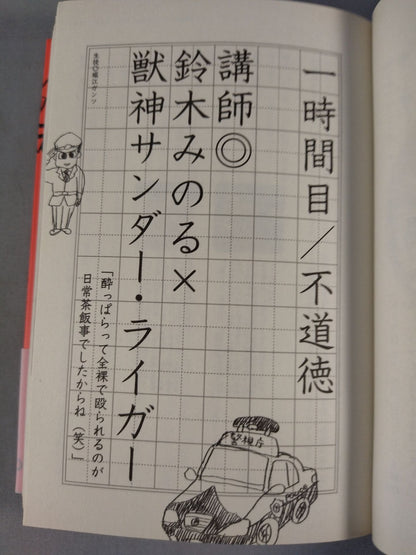 一時間目/不道徳
講師◎
鈴木みのる×
獣神サンダー・ライガー
「酔っぱらって全裸で殴られるのが
日常茶飯事でしたからね(笑)」
生徒◎堀江ガンツ
警視庁